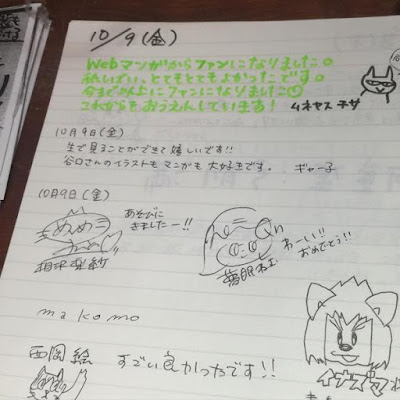 10/9(金)
Webマンガからファンになりました。
とてもとてもよかったです。
今まで以上にファンになりました
これからもおうえんしています! ムネヤス チサ
10月9日(金)
生で見ることができて嬉しいです!!
谷口さんのイラストもマンガも大好きです。 ギャー子
10月9日(金)
あそびに
きましたー!!
わーい!!
おめでとう!!
makomo
西岡 絵
すごい良かったです!!
イナズマ